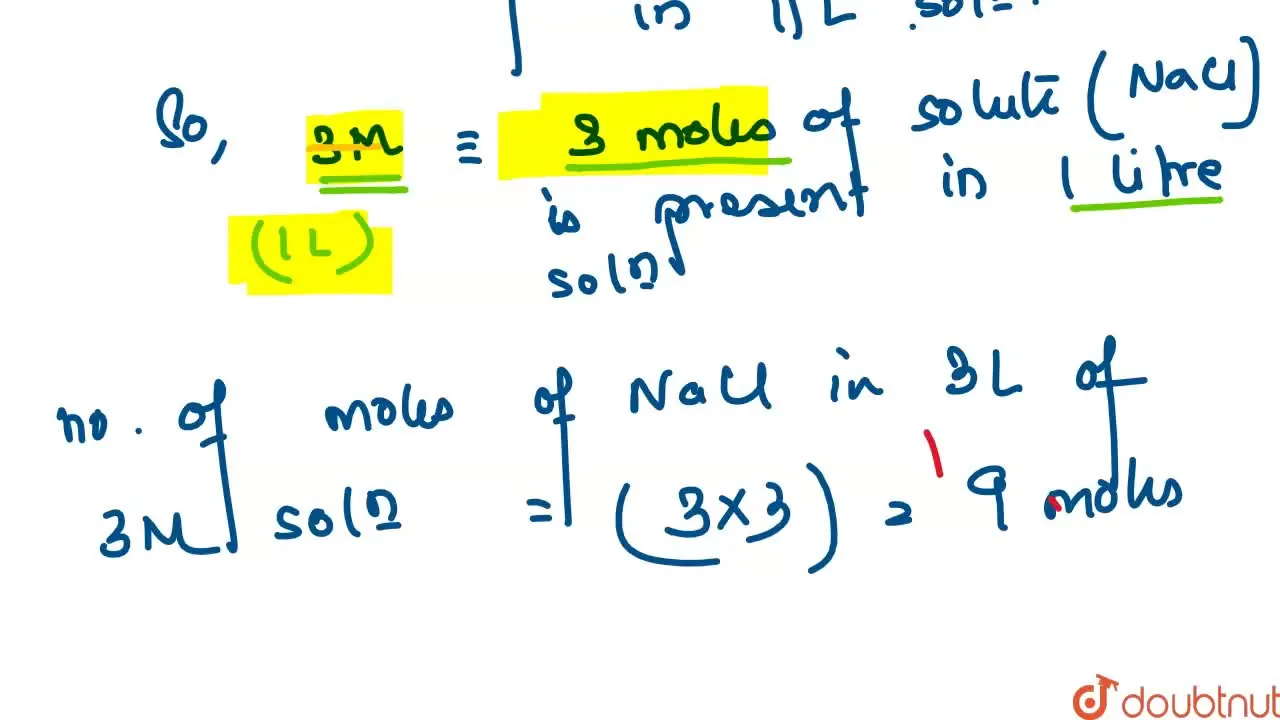 in 1L soln.
So, 3M ≡ 3 moles of solute (NaCl)
(1L) is present in 1 Litre
soln
no. of moles of NaCl in 3L of
3M soln = (3×3) = 9 moles
doubtnut